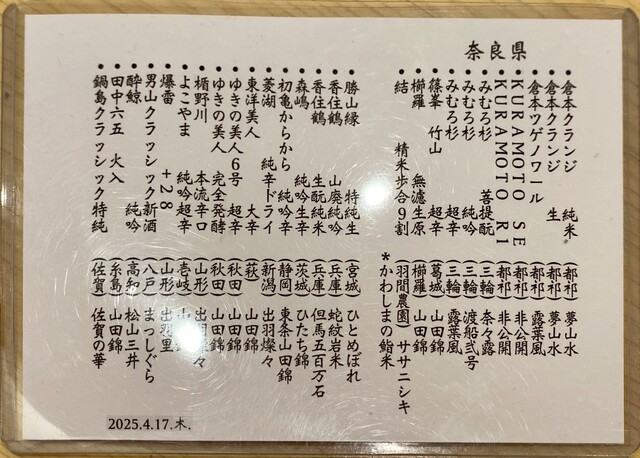 奈良県
• 倉本クランジ 純米 (都祁) 夢山水
• 倉本クランジ 生 (都祁) 夢山水
• 倉本ツゲノワール (都祁) 露葉風
• KURAMOTO SE (都祁) 非公開
• KURAMOTO R1 (都祁) 非公開
• みむろ杉 菩提酛 (三輪) 奈々露
• みむろ杉 純吟 (三輪) 渡船弐号
• みむろ杉 超辛 (三輪) 露葉風
• 篠峯 竹山 超辛 (葛城) 山田錦
• 櫛羅 無濾生原 (櫛羅) 山田錦
• 結 精米歩合9割 (羽間農園) ササニシキ
*かわしまの鮨米
• 勝山縁 特純生 (宮城) ひとめぼれ
• 香住鶴 山廃純吟 (兵庫) 蛇紋岩米
• 香住鶴 生酛純米 (兵庫) 但馬五百万石
• 森嶋 純吟生辛 (茨城) ひたち錦
• 初亀からから 純吟辛 (静岡) 東条山田錦
• 菱湖 純辛ドライ (新潟) 出羽燦々
• 東洋美人 大辛 (萩) 山田錦
• ゆきの美人6号 超辛 (秋田) 山田錦
• ゆきの美人 完全発酵 (秋田) 山田錦
• 楯野川 本流辛口 (山形) 出羽燦々
• よこやま 純吟超辛 (壱岐) 山田錦
• 爆雷 +28 (山形) 出羽の里
• 男山クラッシック新酒 (八戸) まっしぐら
• 酔鯨 純吟 (高知) 松山三井
• 田中六五 火入 (糸島) 山田錦
• 鍋島クラッシック特純 (佐賀) 佐賀の華
2025.4.17.木.